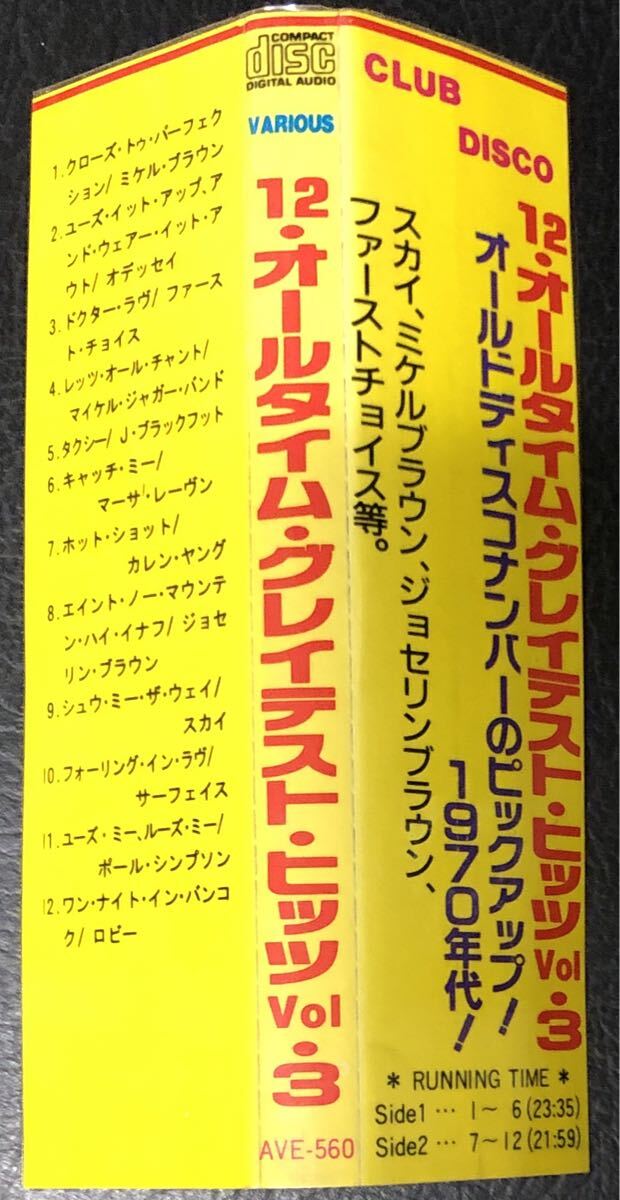 1.クローズ・トゥ・パーフェク
ション/ ミケル・ブラウン
2.ユーズ・イット・アップ、ア
ンド・ウェアー・イット・ア
ウト/ オデッセイ
3.ドクター・ラヴ/ ファース
ト・チョイス
4.レッツ・オール・チャント/
マイケル・ジャガー・バンド
5.タクシー/ J・ブラックフット
6.キャッチ・ミー/
マーサ・レーヴン
7.ホット・ショット/
カレン・ヤング
8.エイント・ノー・マウンテ
ン・ハイ・イナフ/ ジョセ
リン・ブラウン
9.シュウ・ミー・ザ・ウェイ/
スカイ
10.フォーリング・イン・ラヴ/
サーフェイス
11.ユーズ・ミー、ルーズ・ミー/
ポール・シンプソン
12.ワン・ナイト・イン・バンコ
ク/ ロビー
COMPACT
disc
DIGITAL AUDIO
VARIOUS
12・オールタイム・グレイテスト・ヒッツ Vol・3
AVE-560
CLUB
DISCO
12・オールタイム・グレイテスト・ヒッツ Vol・3
オールドディスコナンバーのピックアップ!
1970年代!
スカイ、ミケルブラウン、ジョセリンブラウン、
ファーストチョイス等。
* RUNNING TIME *
Side1 … 1〜 6 (23:35)
Side2 … 7〜12 (21:59)